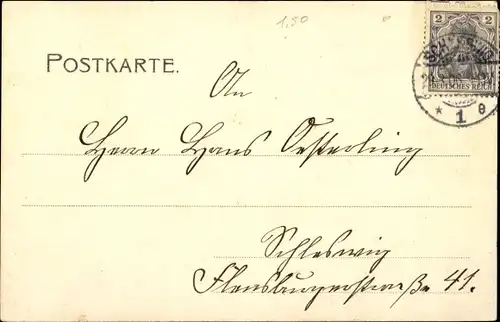 1,50
POSTKARTE.
2
DEUTSCHES REICH
* 1 e
An
Herrn Hans Oesterling
Schleswig
Flensburgerstraße 41.